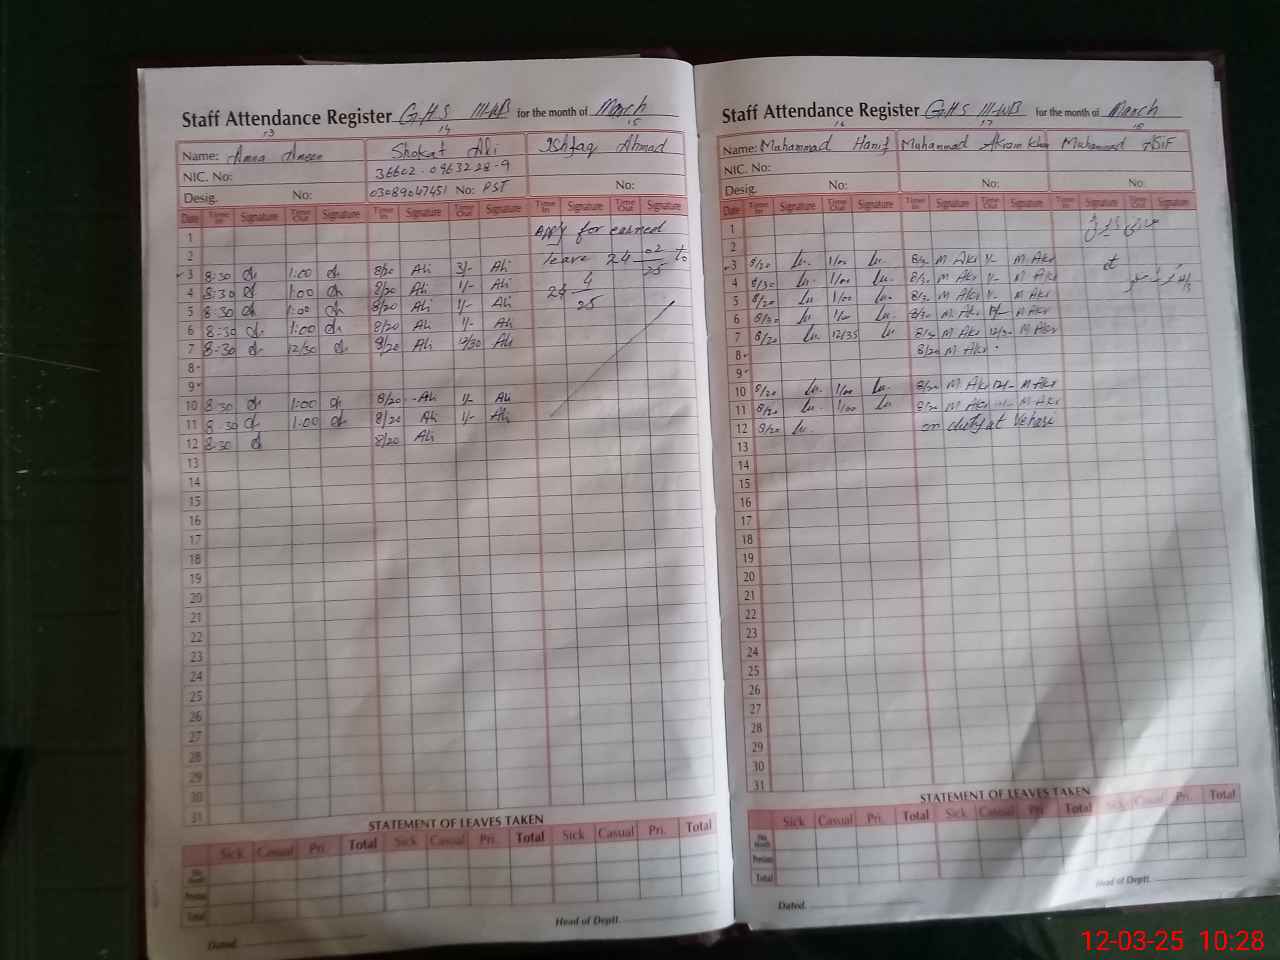 Staff Attendance Register GHS 111-WB for the month of March
13 14 15
Name: Amna Ameen Shokat Ali Ishfaq Ahmad
NIC. No: 36602-0963228-9
Desig. No: 03089047451 No: PST No:
Date Time In Signature Time Out Signature Time In Signature Time Out Signature Time In Signature Time Out Signature
1 Apply for earned
2 leave 24-02-25 to
3 8:30 1:00 8/20 Ali 1/- Ali
4 8:30 1:00 8/20 Ali 1/- Ali 24-4-25
5 8:30 1:00 8/20 Ali 1/- Ali
6 8:30 1:00 8/20 Ali 1/- Ali
7 8:30 12/30 8/20 Ali 12/30 Ali
8
9
10 8:30 1:00 8/20 Ali 1/- Ali
11 8:30 1:00 8/20 Ali 1/- Ali
12 8:30 8/20 Ali
13
14
15
16
17
18
19
20
21
22
23
24
25
26
27
28
29
30
31
STATEMENT OF LEAVES TAKEN
Sick Casual Pri. Total Sick Casual Pri. Total Sick Casual Pri. Total
This Month
Previous
Total
Dated. Head of Deptt.
Staff Attendance Register GHS 111-WB for the month of March
16 17 18
Name: Muhammad Hanif Muhammad Akram Khan Muhammad Asif
NIC. No:
Desig. No: No: No:
Date Time In Signature Time Out Signature Time In Signature Time Out Signature Time In Signature Time Out Signature
1
2
3 8/20 1/00 8/20 M Akr 1/- M Akr
4 8/20 1/00 8/20 M Akr 1/- M Akr
5 8/20 1/00 8/20 M Akr 1/- M Akr
6 8/20 1/- 8/20 M Akr 1/- M Akr
7 8/20 12/35 8/20 M Akr 12/30 M Akr
8 8/20 M Akr
9
10 8/20 1/00 8/20 M Akr M Akr
11 8/20 1/00 8/20 M Akr M Akr
12 8/20 on duty at Vehari
13
14
15
16
17
18
19
20
21
22
23
24
25
26
27
28
29
30
31
STATEMENT OF LEAVES TAKEN
Sick Casual Pri. Total Sick Casual Pri. Total Sick Casual Pri. Total
This Month
Previous
Total
Dated. Head of Deptt.
12-03-25 10:28